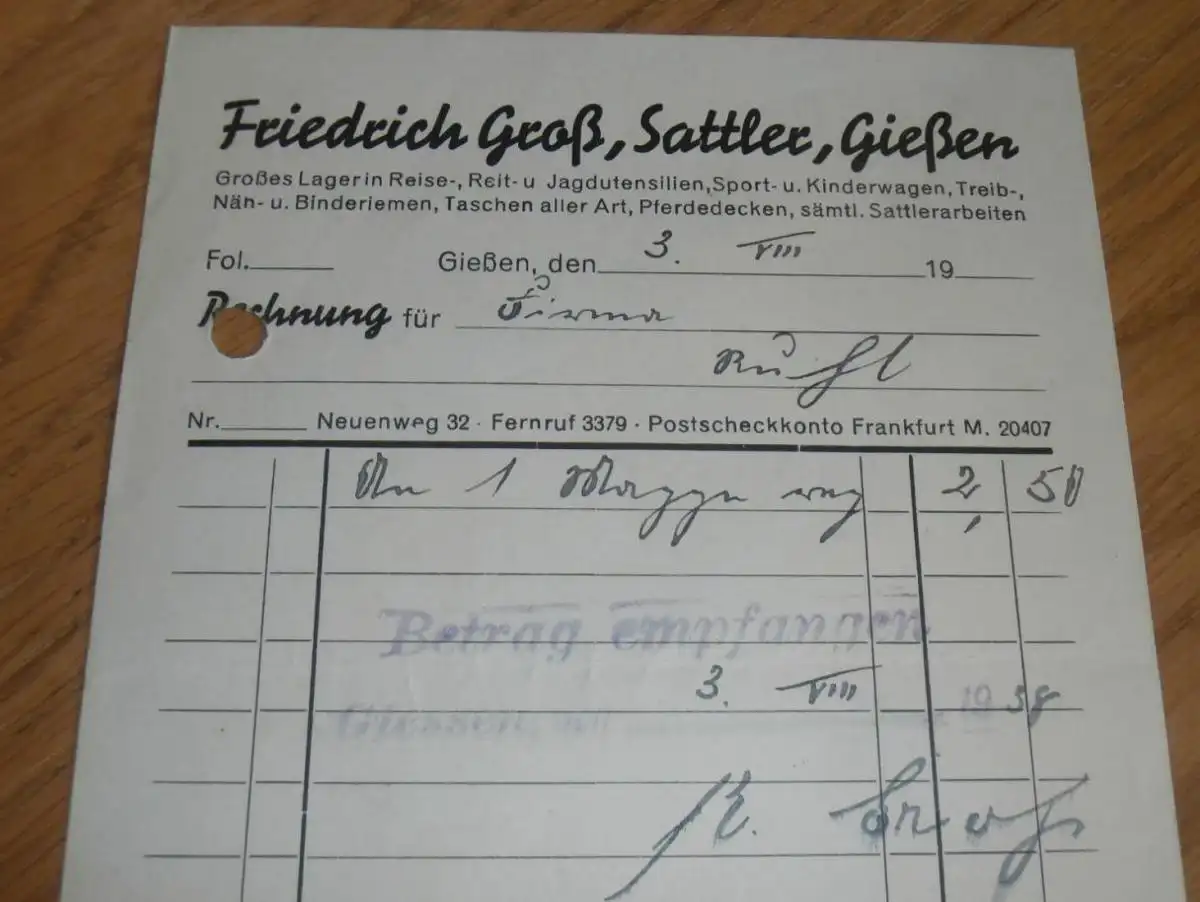 Friedrich Groß, Sattler, Gießen
Großes Lager in Reise-, Reit- u Jagdutensilien, Sport- u. Kinderwagen, Treib-,
Näh- u. Binderiemen, Taschen aller Art, Pferdedecken, sämtl. Sattlerarbeiten
Fol. Gießen, den 3. VIII 19
Rechnung für Firma
Ruhl
Nr. Neuenweg 32 · Fernruf 3379 · Postscheckkonto Frankfurt M. 20407
An 1 2, 50
Betrag empfangen
3. VIII 19 38
Giessen, den